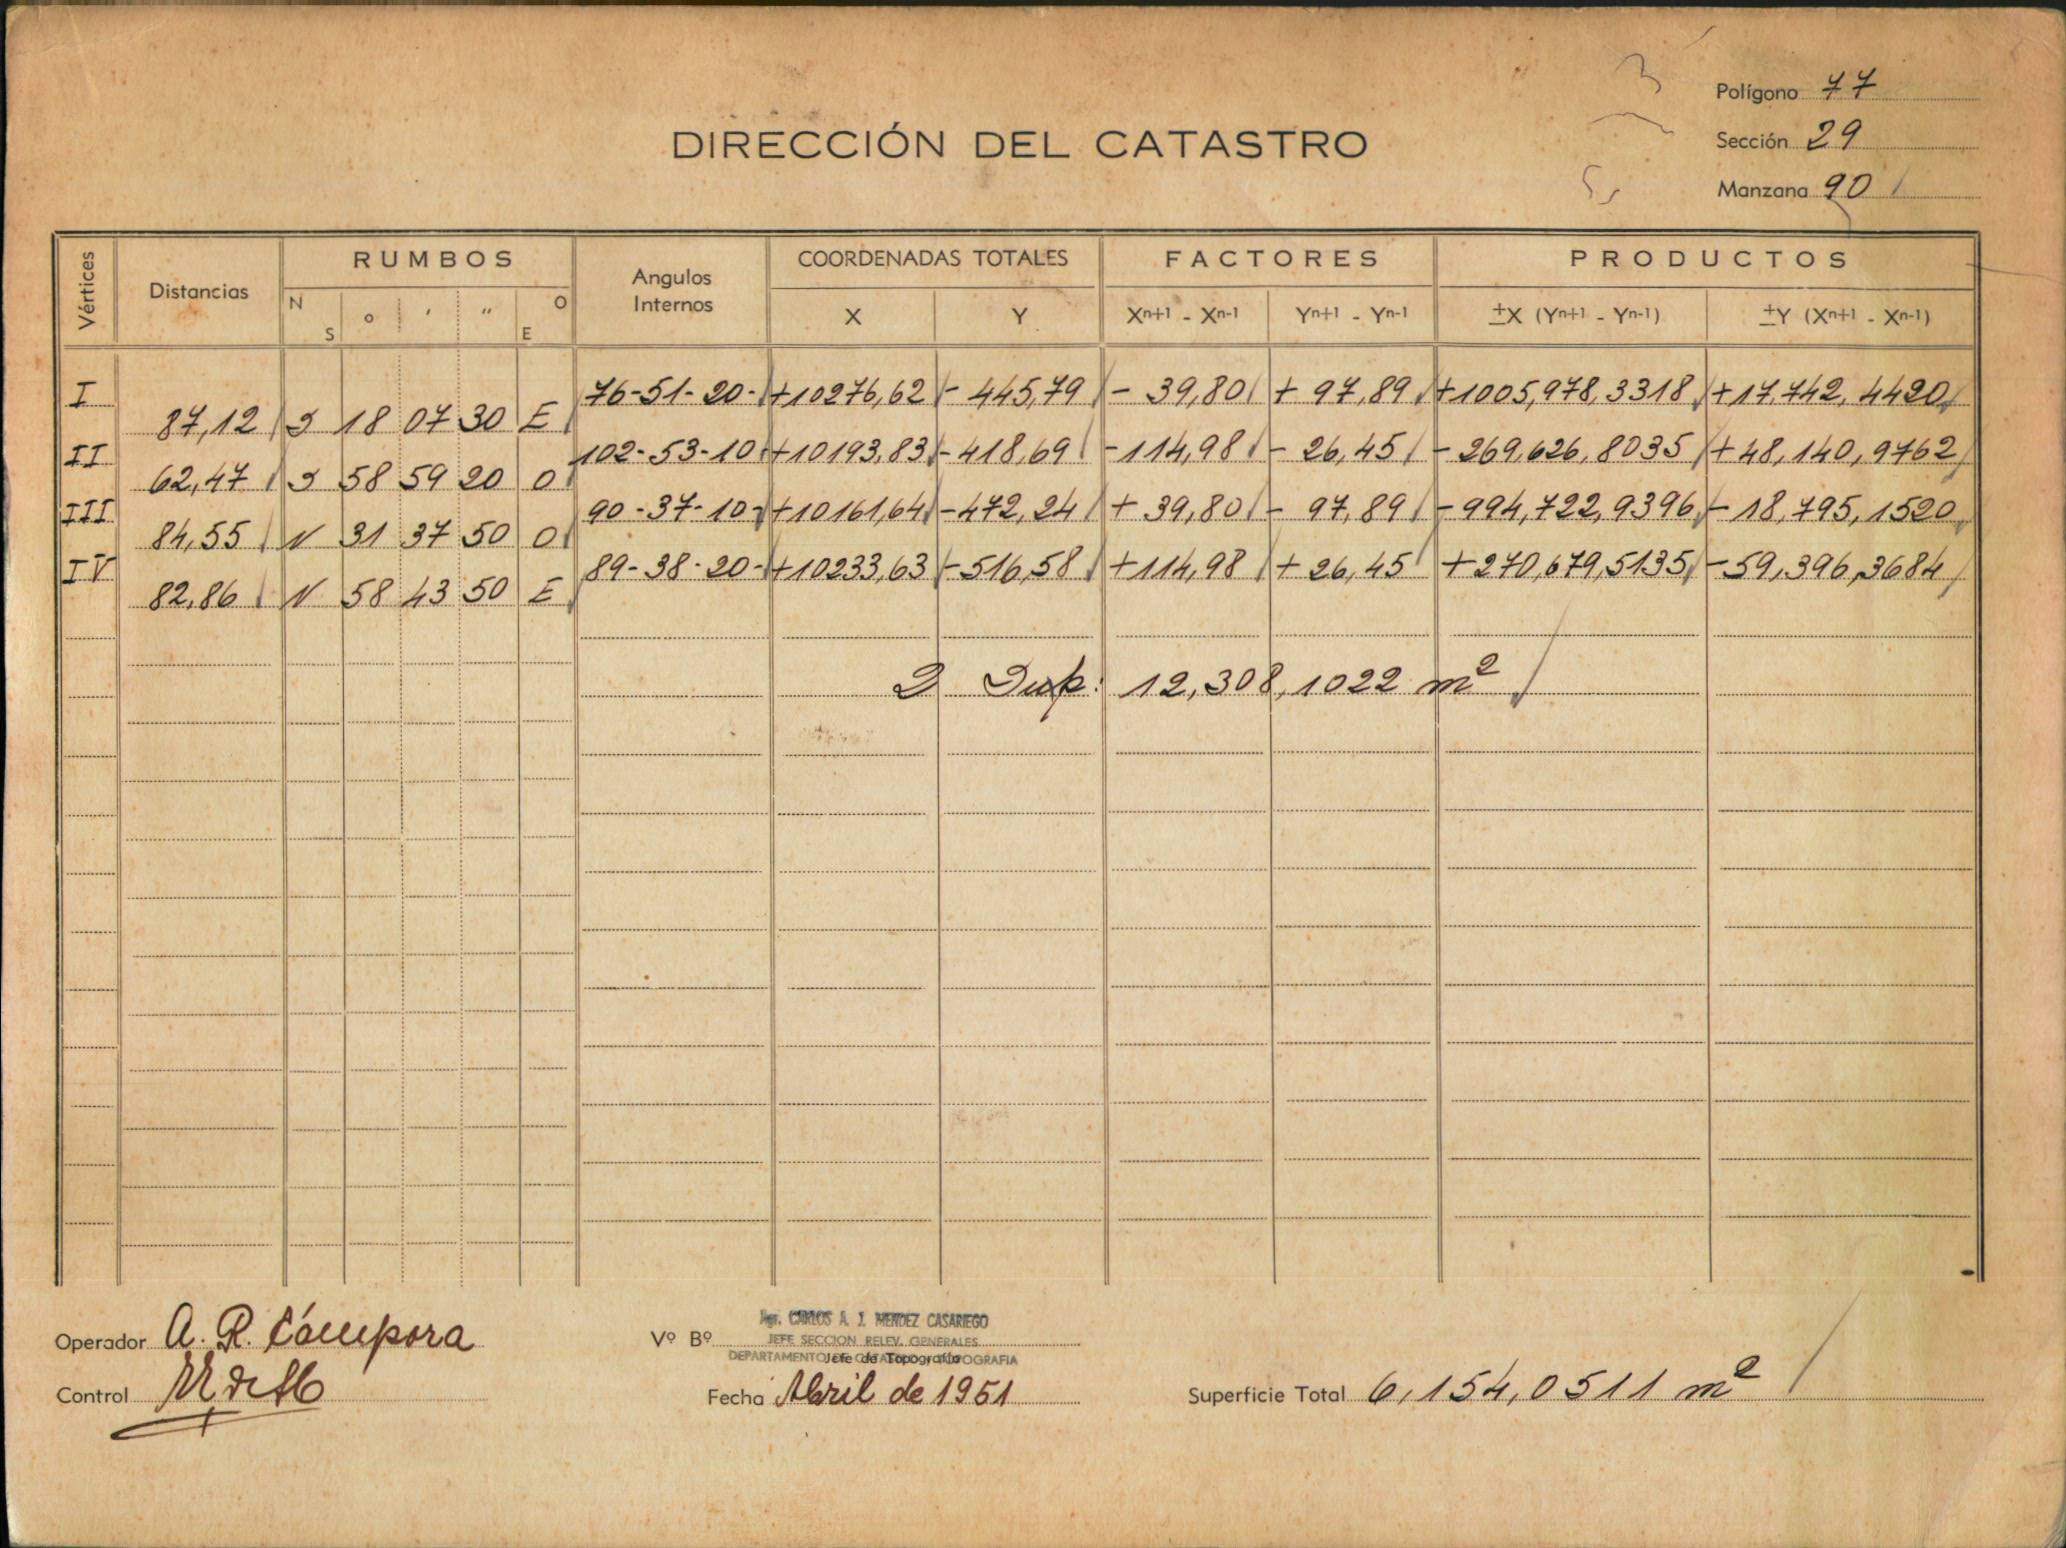 Polígono 77
DIRECCIÓN DEL CATASTRO
Sección 29
Manzana 90
Vértices Distancias RUMBOS Angulos Internos COORDENADAS TOTALES FACTORES PRODUCTOS
N S o ' " O E X Y Xn+1 - Xn-1 Yn+1 - Yn-1 ±X (Yn+1 - Yn-1) ±Y (Xn+1 - Xn-1)
I 76-51-20- +10276,62 - 445,79 - 39,80 + 97,89 +1005,978,3318 +17,742,4420
87,12 S 18 07 30 E
II 102-53-10 +10193,83 -418,69 -114,98 - 26,45 -269,626,8035 +48,140,9762
62,47 S 58 59 20 O
III 90-37-10- +10161,64 -472,24 + 39,80 - 97,89 -994,722,9396 -18,795,1520
84,55 N 31 37 50 O
IV 89-38-20- +10233,63 -516,58 +114,98 + 26,45 +270,679,5135 -59,396,3684
82,86 N 58 43 50 E
2 Sup: 12,308,1022 m²
Operador A. R. Cámpora
Vº Bº
CARLOS A. J. MENDEZ CASARIEGO
JEFE SECCION RELEV. GENERALES
DEPARTAMENTO DE CATASTRO Y TOPOGRAFIA
Jefe de Topografía
Control
Fecha Abril de 1951
Superficie Total 6,154,0511 m²